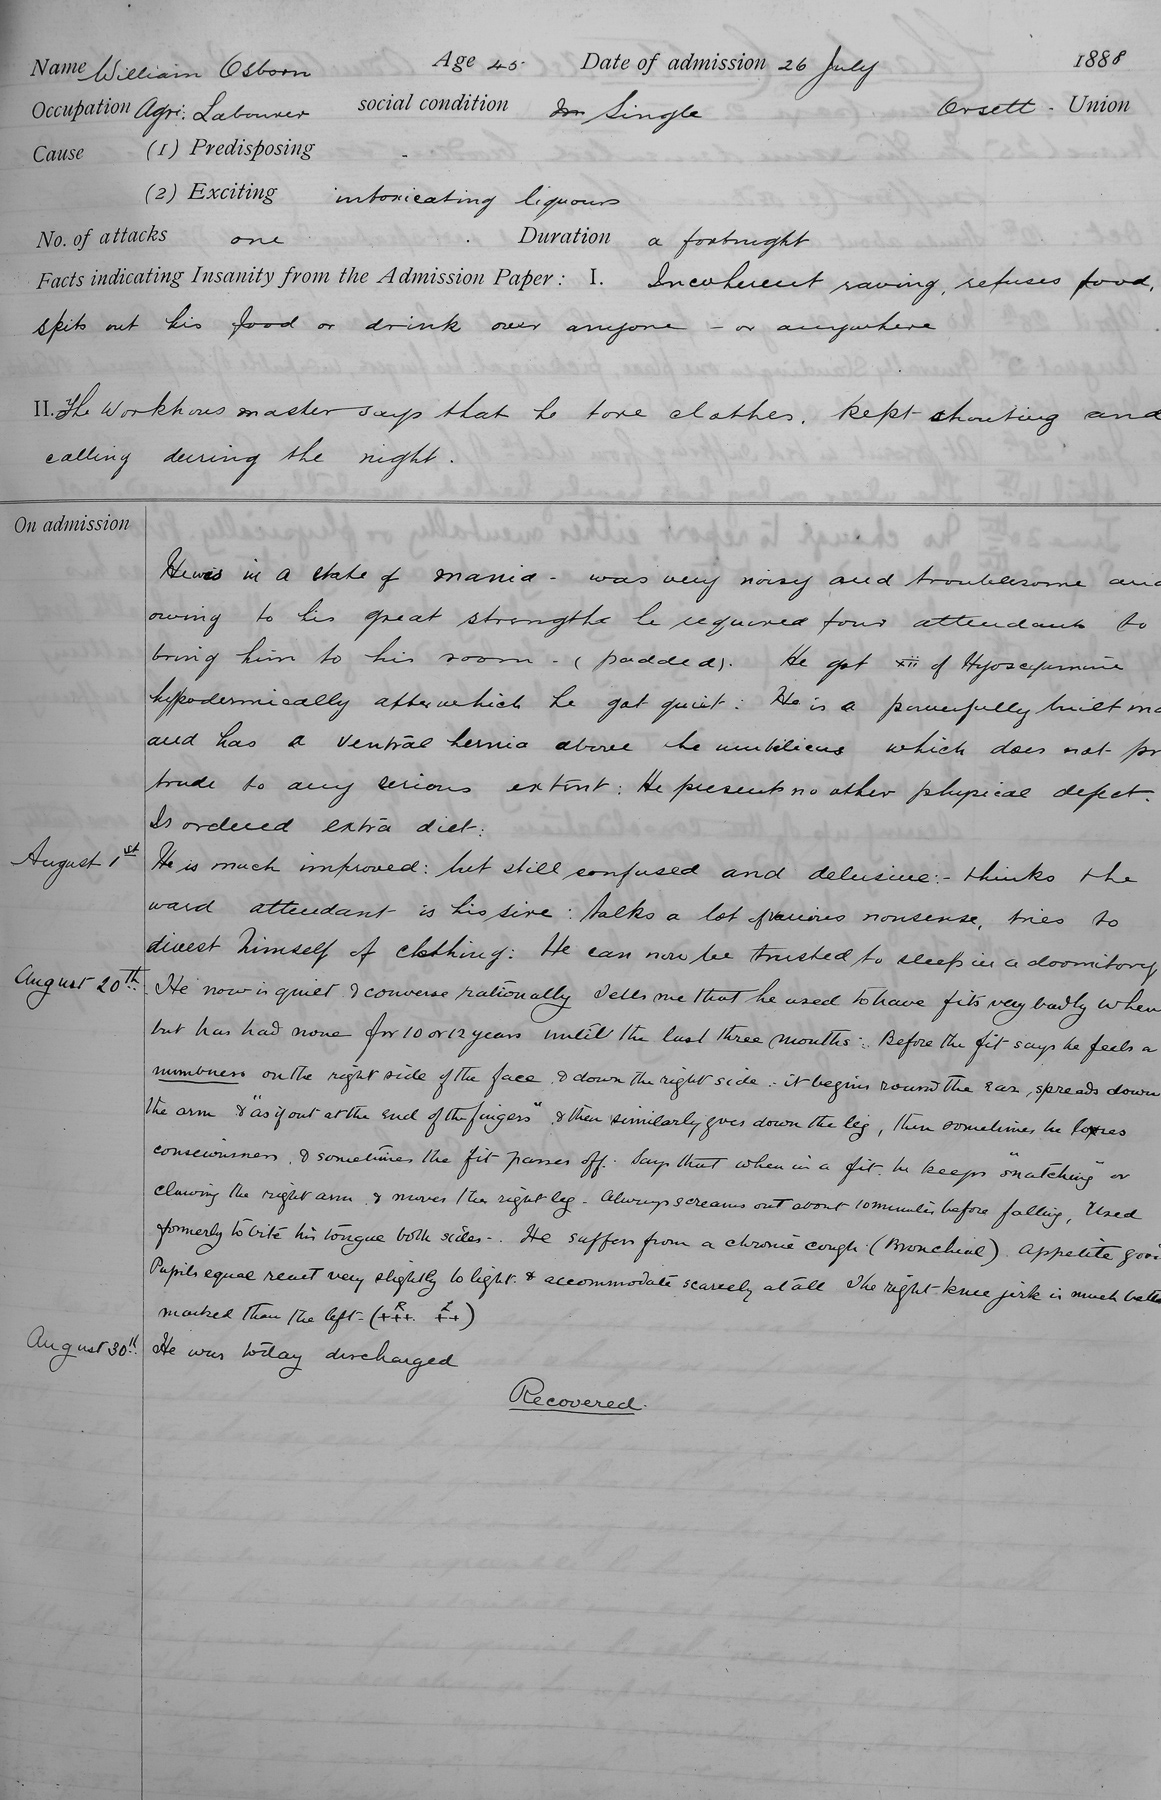 Name William Osborn Age 45 Date of admission 26 July 1888
Occupation Agri: Labourer social condition Single Orsett - Union
Cause (1) Predisposing -
(2) Exciting intoxicating liquours
No. of attacks one Duration a fortnight
Facts indicating Insanity from the Admission Paper: I. Incoherent raving, refuses food,
spits out his food or drink over anyone - or anywhere
II. The Workhous master says that he tore clothes, kept shouting and
calling during the night.
On admission
He was in a state of mania - was very noisy and troublesome and
owing to his great strength he required four attendants to
bring him to his room - (padded). He got xii of Hyoscyamine
hypodermically after which he got quiet: He is a powerfully built ma
and has a ventral hernia above he umbilicus which does not pr
trude to any serious extent: He presents no other physical defect.
Is ordered extra diet:
August 1st He is much improved: but still confused and delusive:- thinks the
ward attendant is his sire: talks a lot of nonsense, tries to
divest himself of clothing: He can now be trusted to sleep in a doormitory
August 20th: He now is quiet & converse rationally tells me that he used to have fits very badly when
but has had none for 10 or 12 years until the last three months: Before the fit says he feels a
numbness on the right side of the face & down the right side: it begins round the ear, spreads down
the arm & "as if out at the end of the fingers" & then similarly goes down the leg, then sometimes he loses
consciousness, & sometimes the fit passes off. Says that when in a fit he keeps "snatching" or
clawing the right arm & moves the right leg - Always screams out about 10 minutes before falling, Used
formerly to bite his tongue both sides -. He suffers from a chronic cough (Bronchial) appetite goo
Pupils equal react very slightly to light & accommodate scarcely at all The right knee jerk is much bette
marked than the left - (R +++. L ++)
August 30th: He was today discharged
Recovered.